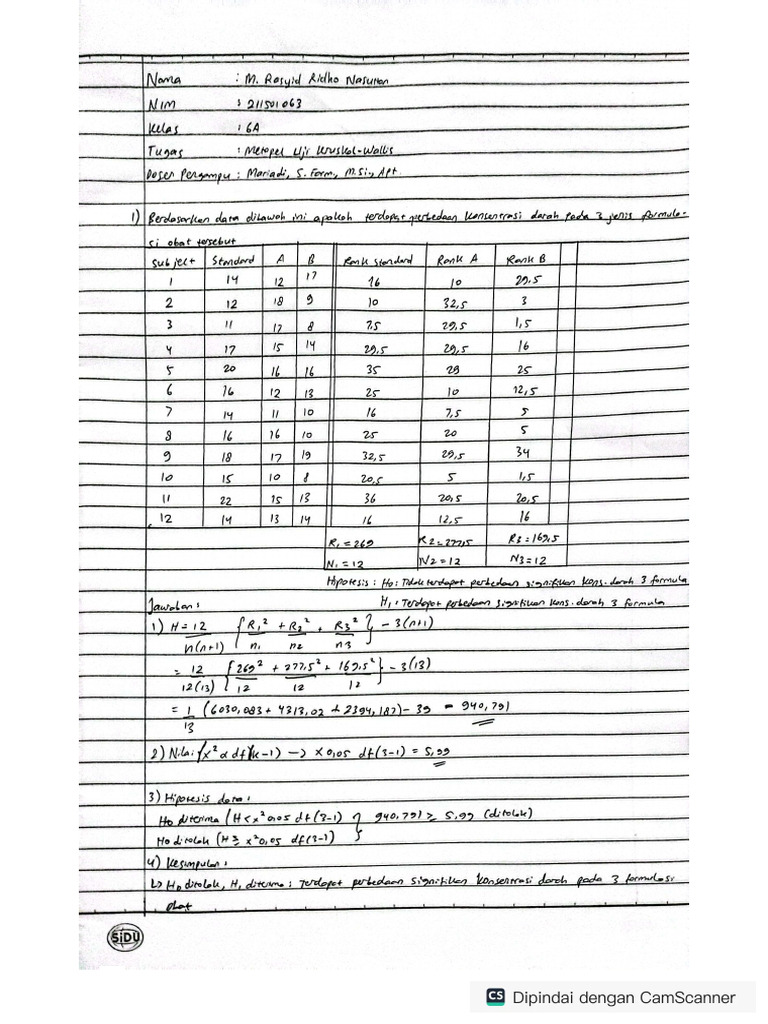 Nama : M. Rasyid Ridho Nasution
NIM : 211501063
Kelas : 6A
Tugas : Metopel Uji Kruskal-Wallis
Dosen Pengampu : Mariadi, S. Farm, M.Si., Apt.
1) Berdasarkan data dibawah ini apakah terdapat perbedaan konsentrasi darah pada 3 jenis formula-
si obat tersebut
Subjekt Standard A B Rank Standard Rank A Rank B
1 14 12 17 16 10 29.5
2 12 18 9 10 32,5 3
3 11 17 8 7.5 29,5 1,5
4 17 15 14 29,5 29,5 16
5 20 16 16 35 28 25
6 16 12 13 25 10 12,5
7 14 11 10 16 7,5 5
8 16 16 10 25 20 5
9 18 17 19 32,5 29,5 34
10 15 10 8 20,5 5 1,5
11 22 15 13 36 20,5 20,5
12 14 13 14 16 12,5 16
R1 = 269 R2 = 277,5 R3 = 169,5
N1 = 12 N2 = 12 N3 = 12
Hipotesis : H0 : Tidak terdapat perbedaan signifikan kons. darah 3 formula
Jawaban : H1 : Terdapat perbedaan signifikan kons. darah 3 formula
1) H = 12/n(n+1) {R1²/n1 + R2²/n2 + R3²/n3} - 3(n+1)
= 12/12(13) {269²/12 + 277,5²/12 + 169,5²/12} - 3(13)
= 1/13 (6030,083 + 4313,02 + 2394,187) - 39 = 940,791
2) Nilai (x² α df)(k-1) -> x 0,05 df (3-1) = 5,99
3) Hipotesis data :
H0 diterima (H < x² 0,05 df (3-1) } 940,791 ≥ 5,99 (ditolak)
H0 ditolak (H ≥ x² 0,05 df (3-1)
4) Kesimpulan :
↳ H0 ditolak, H1 diterima : Terdapat perbedaan signifikan konsentrasi darah pada 3 formulasi
obat
SiDU
CS Dipindai dengan CamScanner